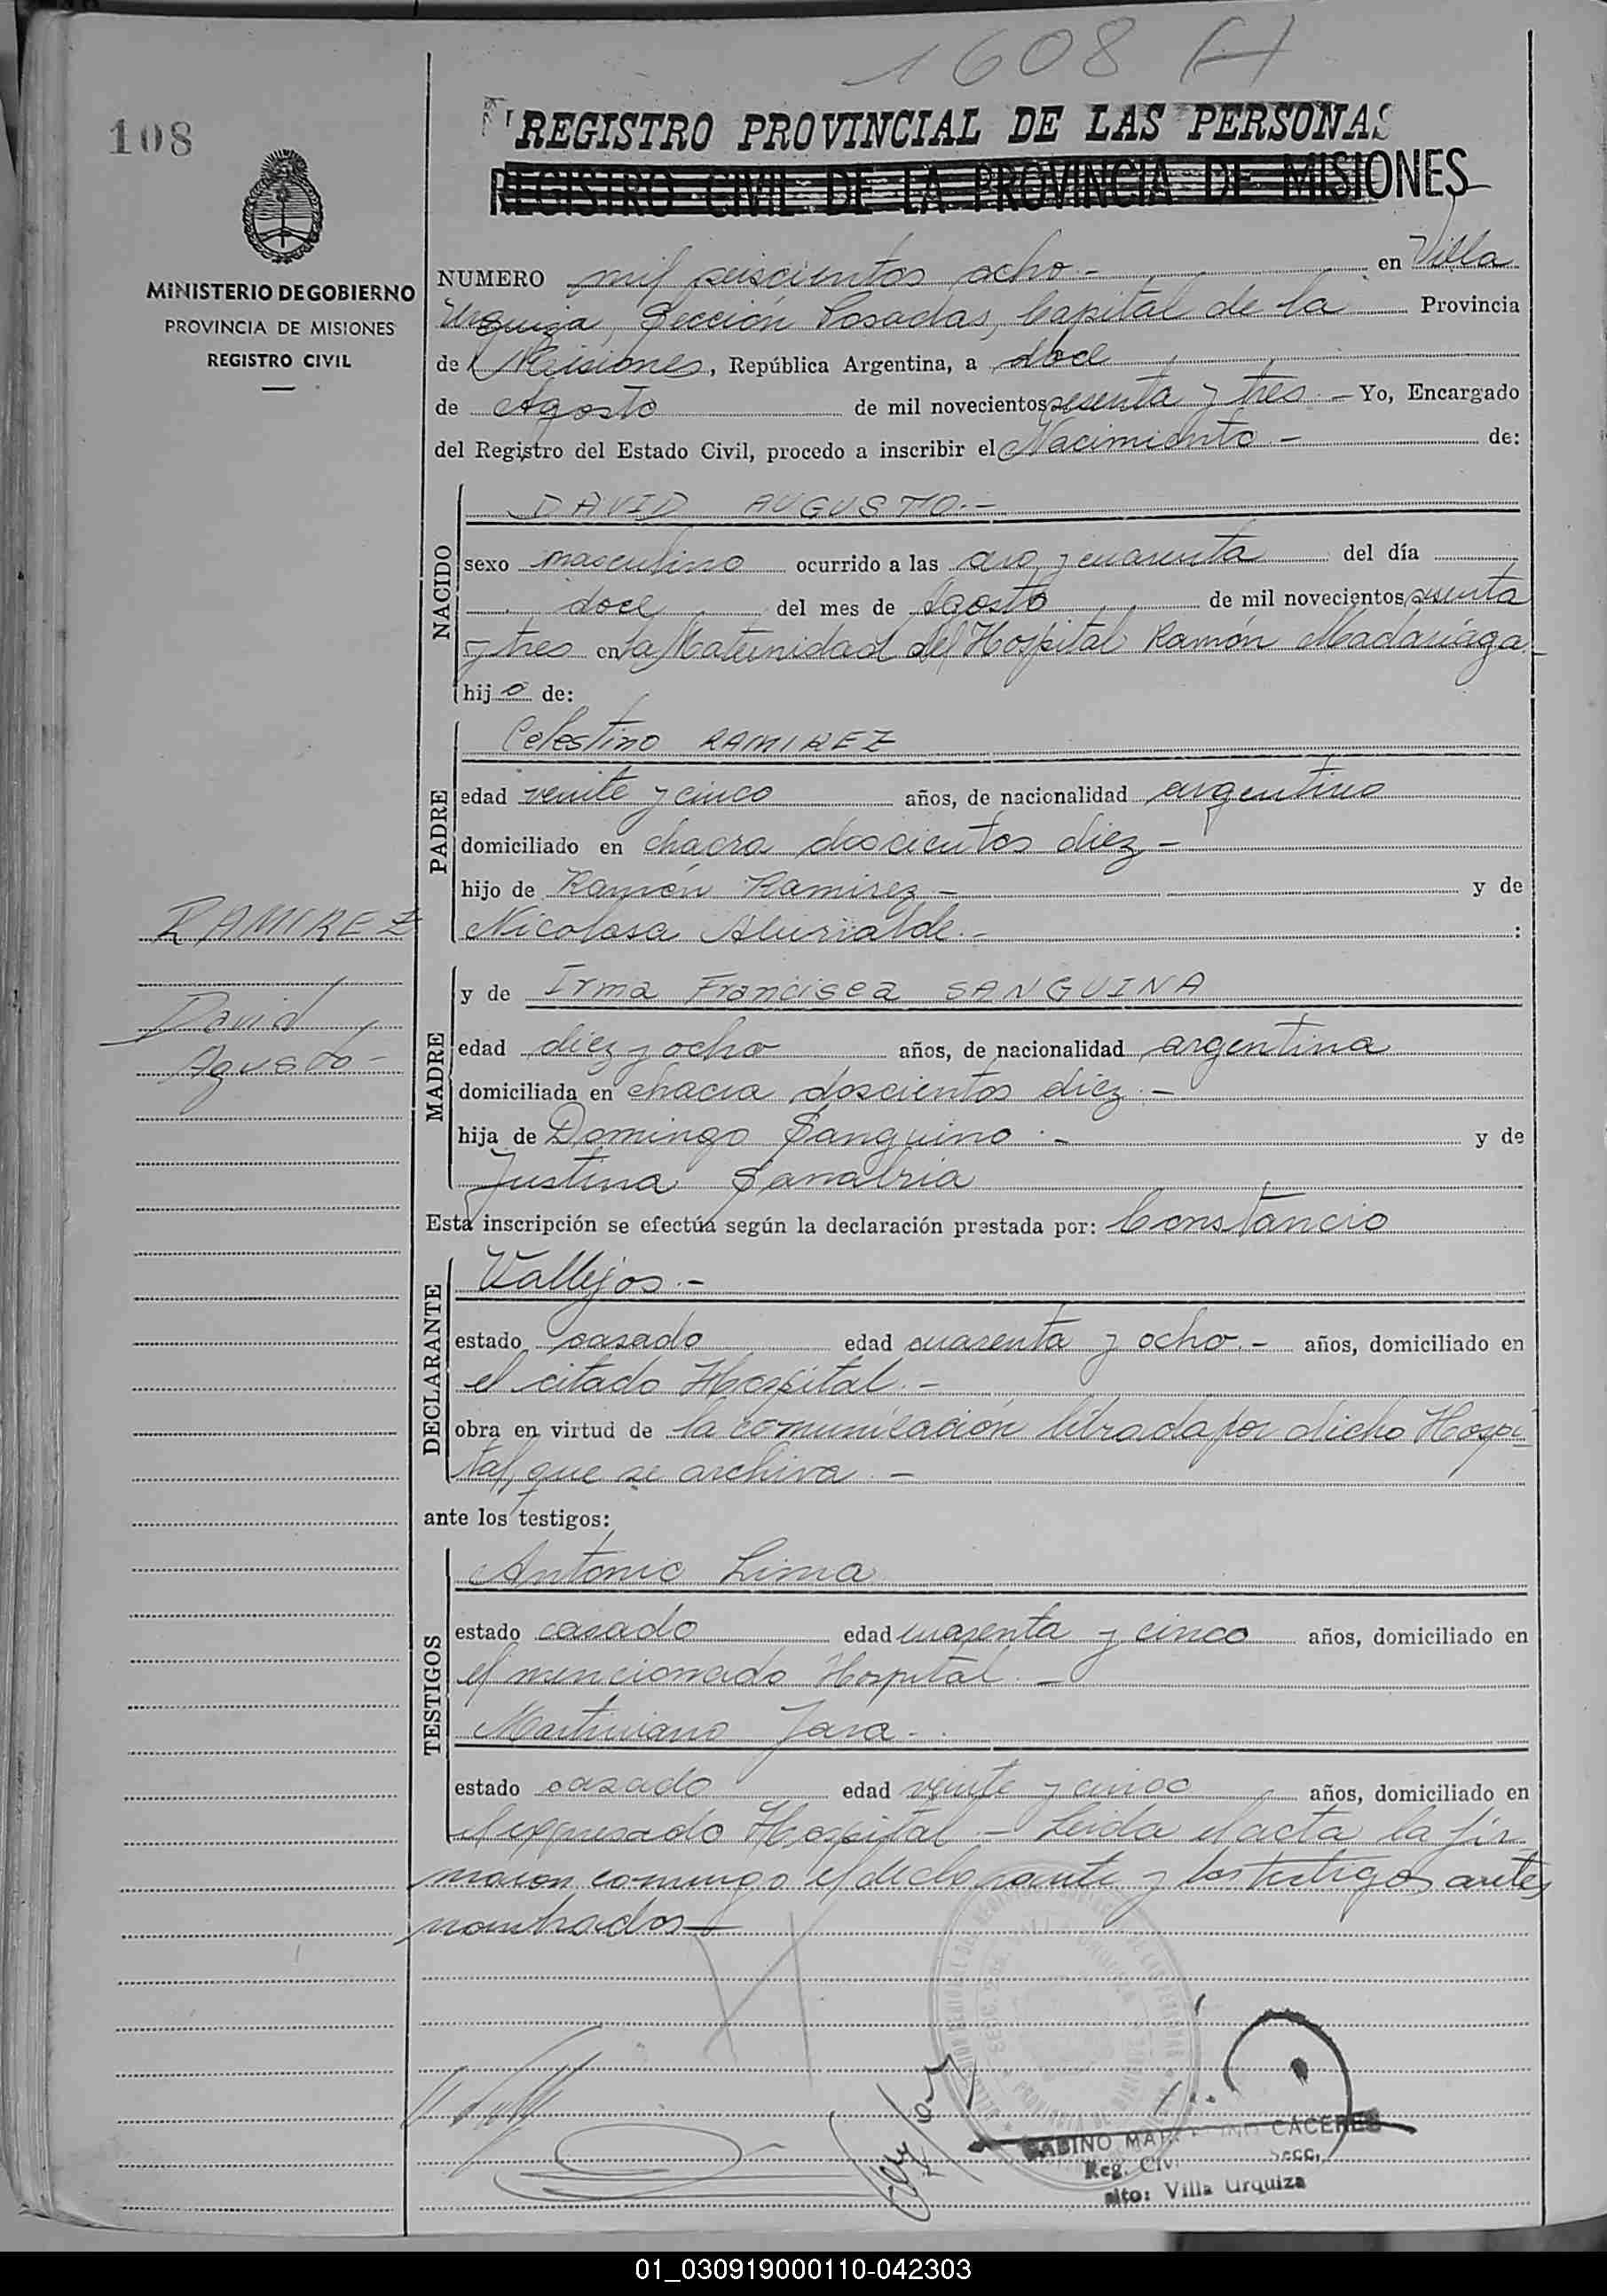 1608 (H)
108
REGISTRO PROVINCIAL DE LAS PERSONAS
REGISTRO CIVIL DE LA PROVINCIA DE MISIONES
MINISTERIO DE GOBIERNO
PROVINCIA DE MISIONES
REGISTRO CIVIL
NUMERO mil seiscientos ocho.- en Villa
Urquiza, Sección Posadas, Capital de la Provincia
de Misiones, República Argentina, a doce
de Agosto de mil novecientos sesenta y tres.- Yo, Encargado
del Registro del Estado Civil, procedo a inscribir el Nacimiento.- de:
NACIDO
DAVID AUGUSTO.-
sexo masculino ocurrido a las una y cuarenta del día
doce del mes de Agosto de mil novecientos sesenta
y tres en la Maternidad del Hospital Ramón Madariaga.-
hijo de:
PADRE
Celestino RAMIREZ
edad veinte y cinco años, de nacionalidad argentino
domiciliado en chacra doscientos diez.-
hijo de Ramón Ramirez.- y de
Nicolasa :
RAMIREZ
David
Agusto-
MADRE
y de Irma Francisca SANGUINA
edad diez y ocho años, de nacionalidad argentina
domiciliada en chacra doscientos diez.-
hija de Domingo Sanguino.- y de
Justina Sanabria
Esta inscripción se efectúa según la declaración prestada por: Constancio
DECLARANTE
Vallejos.-
estado casado edad cuarenta y ocho.- años, domiciliado en
el citado Hospital.-
obra en virtud de la comunicación librada por dicho Hospi
tal, que se archiva.-
ante los testigos:
TESTIGOS
Antonio Lima
estado casado edad cuarenta y cinco años, domiciliado en
el mencionado Hospital.-
Martiniano Jara.-
estado casado edad veinte y cinco años, domiciliado en
el expresado Hospital.- Leida el acta la fir
maron conmigo el declarante y los testigos antes
nombrados.-
SABINO CACERES
Reg. Civ. Secc.
Villa Urquiza
01_030919000110-042303